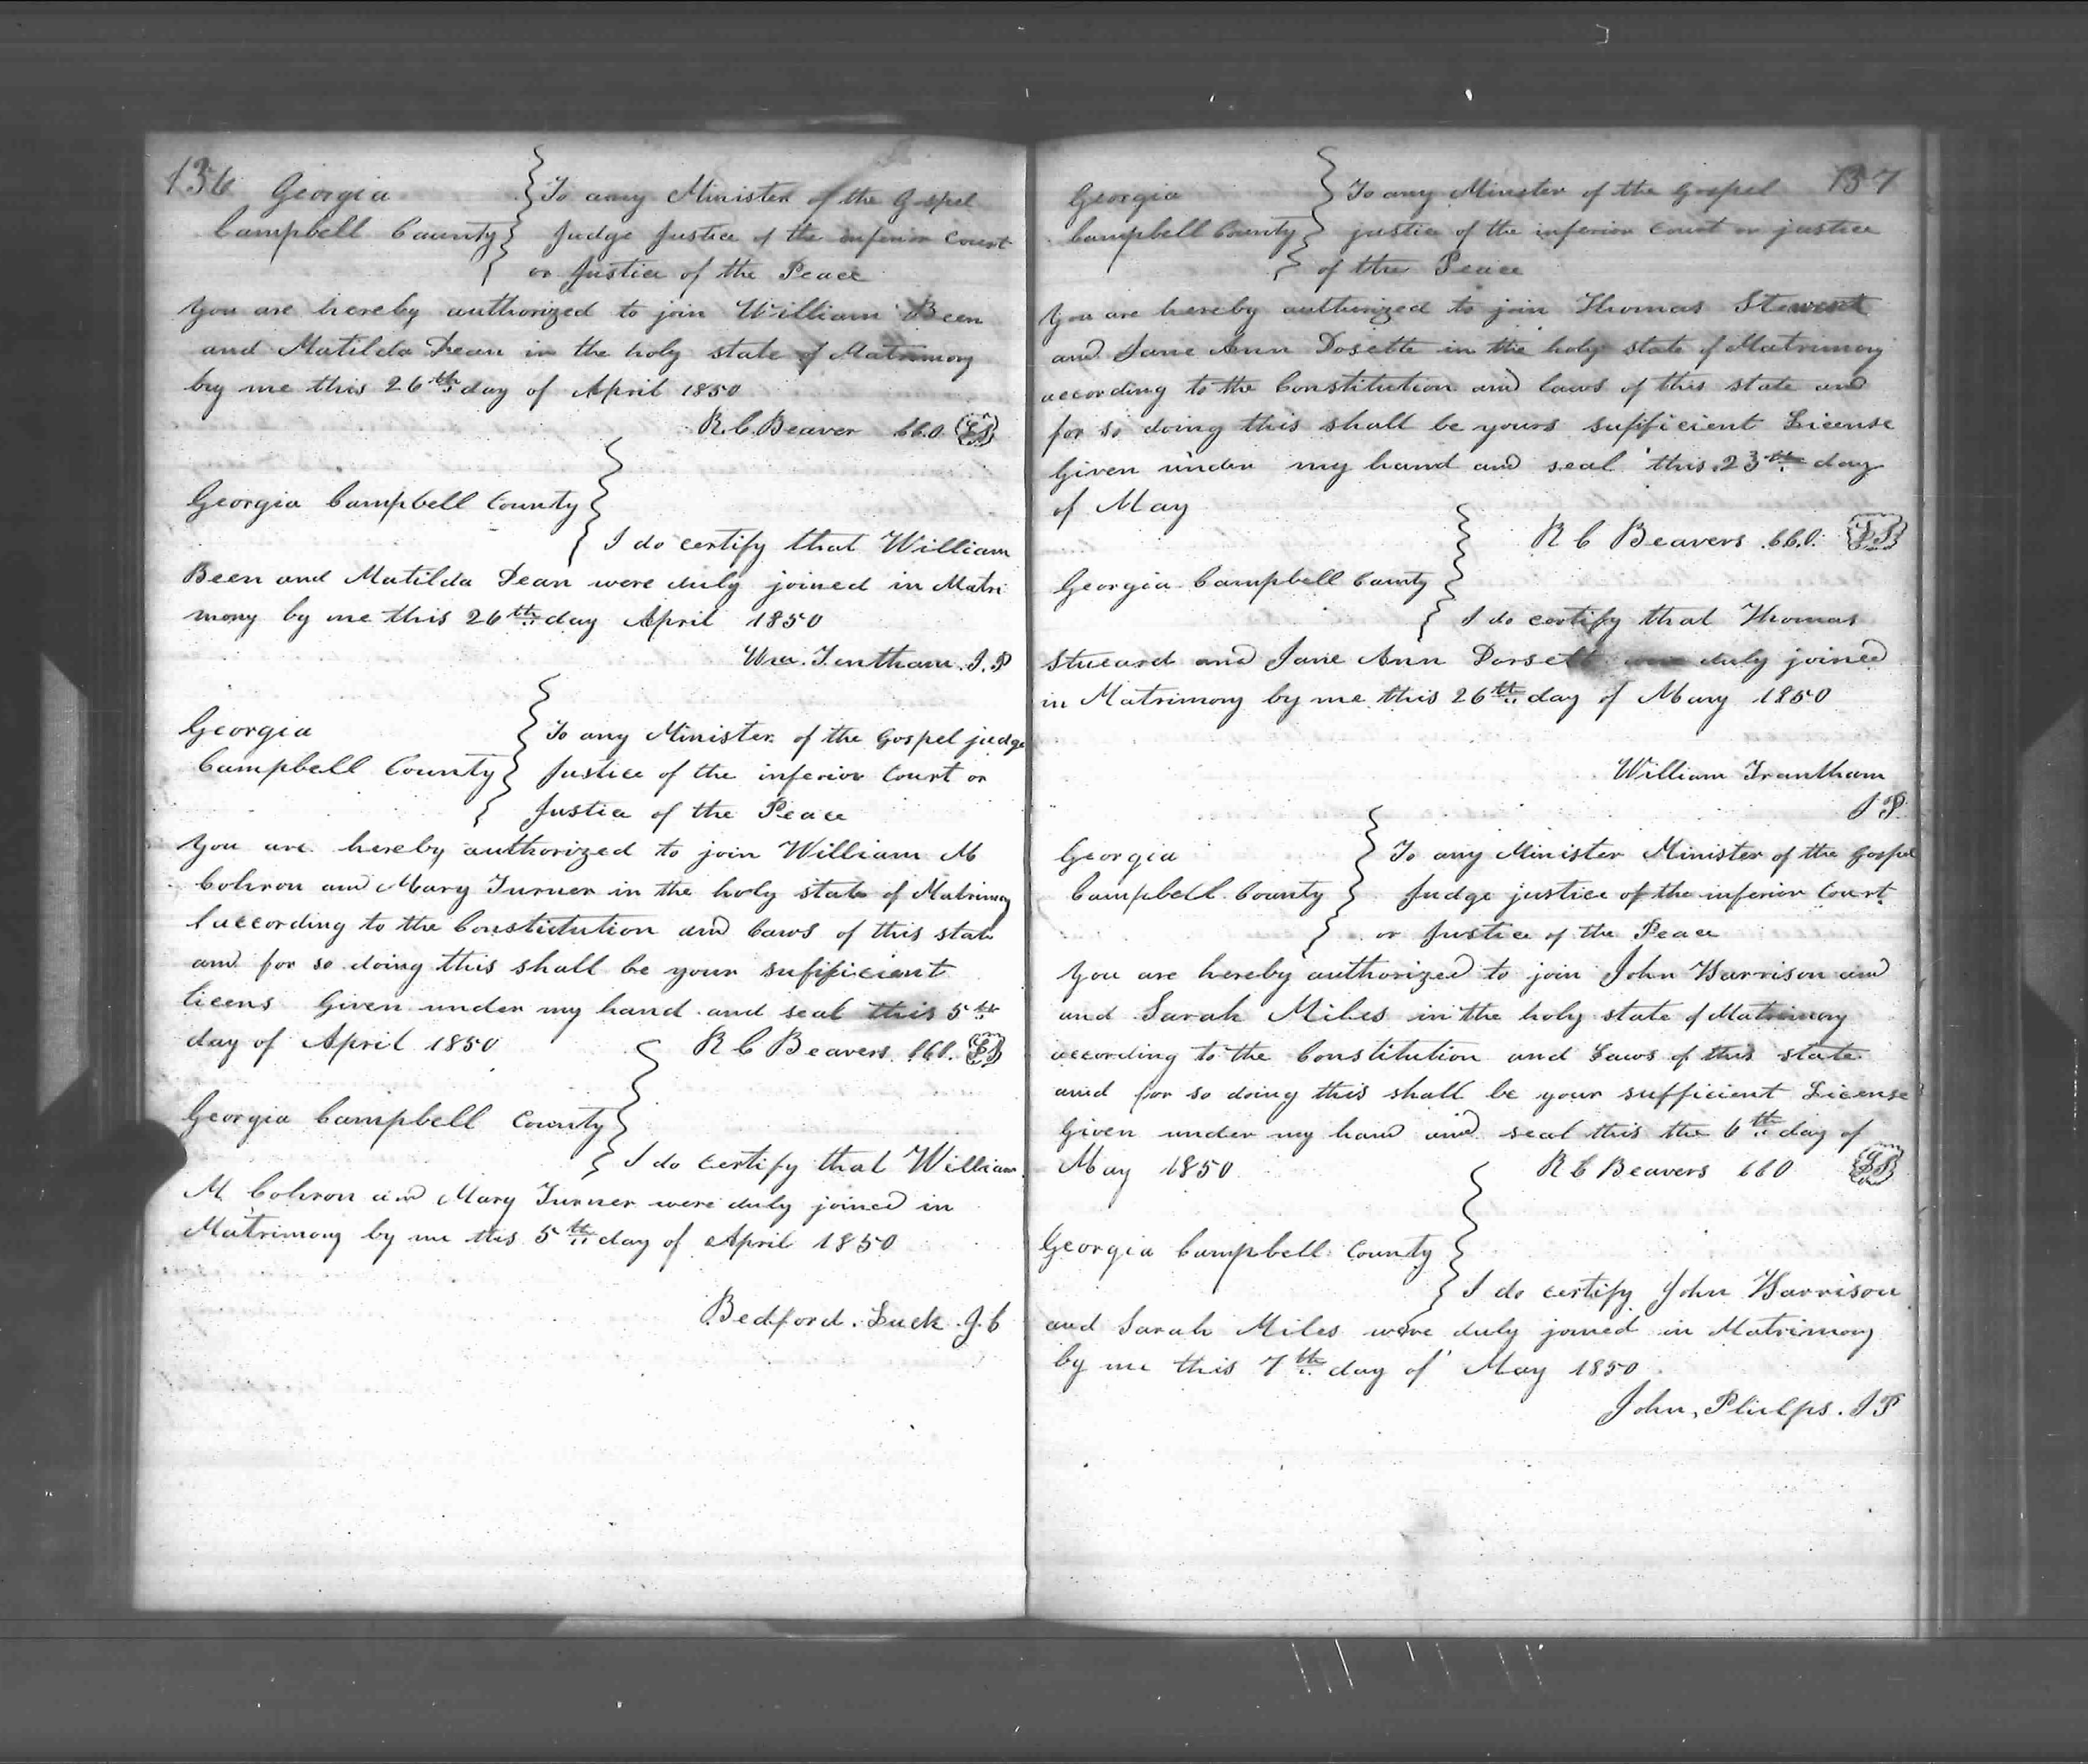 136 Georgia } To any Minister of the Gospel
Campbell County } Judge Justice of the inferior Court
or Justice of the Peace
You are hereby authorized to join William Been
and Matilda Dean in the holy state of Matrimony
by me this 26th day of April 1850
R. C. Beaver C.C.O. LS
Georgia Campbell County }
I do certify that William
Been and Matilda Dean were duly joined in Matri
mony by me this 26th day April 1850
Wm. Tentham. J. P
Georgia } To any Minister of the Gospel judge
Campbell County } Justice of the inferior Court or
Justice of the Peace
You are hereby authorized to join William M
Cohron and Mary Turner in the holy state of Matrimony
according to the Constitution and Laws of this state
and for so doing this shall be your sufificient
licens Given under my hand and seal this 5th
day of April 1850 R C Beavers. C.C.O. LS
Georgia Campbell County }
I do certify that William
M. Cohron and Mary Turner were duly joined in
Matrimony by me this 5th day of April 1850
Bedford. Luck. J. C
137
Georgia } To any Minister of the Gospel
Campbell County } justice of the inferior Court or justice
of the Peace
You are hereby authorized to join Thomas Stewart
and Jane Ann Dosette in the holy state of Matrimony
according to the Constitution and laws of this state and
for so doing this shall be yours sufificient License
Given under my hand and seal this 23th day
of May
R C Beavers C.C.O. LS
Georgia Campbell County }
I do certify that Thomas
Stueard and Jane Ann Dorsett were duly joined
in Matrimony by me this 26th day of May 1850
William Trantham
J P.
Georgia } To any Minister Minister of the Gospel
Campbell County } Judge justice of the inferior Court
or Justice of the Peace
You are hereby authorized to join John Harrison and
and Sarah Miles in the holy state of Matrimony
according to the Constitution and Laws of this state
and for so doing this shall be your sufficient License
Given under my hand and seal this the 6th day of
May 1850 R C Beavers CCO LS
Georgia Campbell County }
I do certify John Harrison
and Sarah Miles were duly joined in Matrimony
by me this 7th day of May 1850
John, Phelps. J P